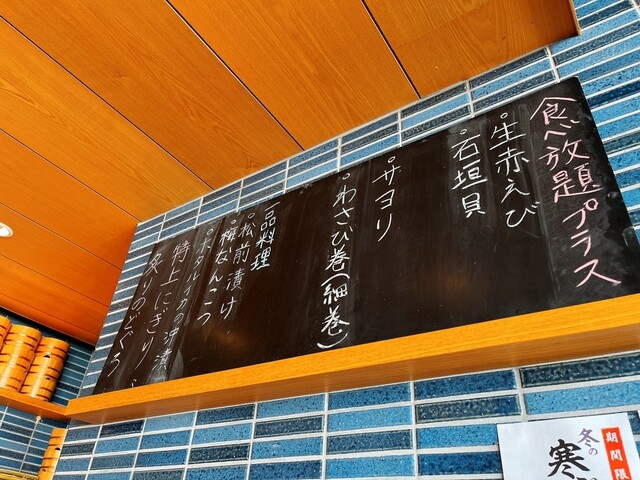 食べ放題プラス
○生赤えび
○石垣貝
○サヨリ
○わさび巻(細巻)
一品料理
○松前漬け
○梅なんこつ
○ホタルイカの沖漬
特上にぎり
炙りのどぐろ
期間限
冬の
寒